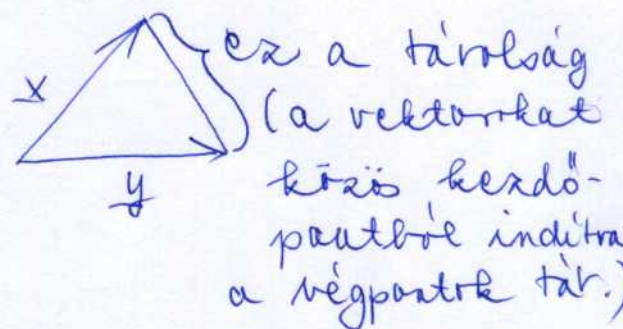 x
y
ez a távolság
(a vektorokat
közös kezdő-
pontból indítva
a végpontok táv.)